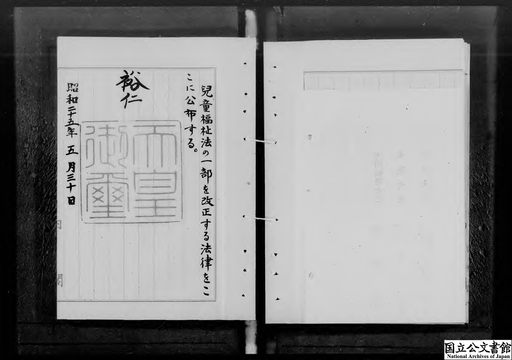 兒童福祉法の一部を改正する法律をこ
こに公布する。
裕仁
天皇
御璽
昭和二十五年五月三十日
国立公文書館
National Archives of Japan